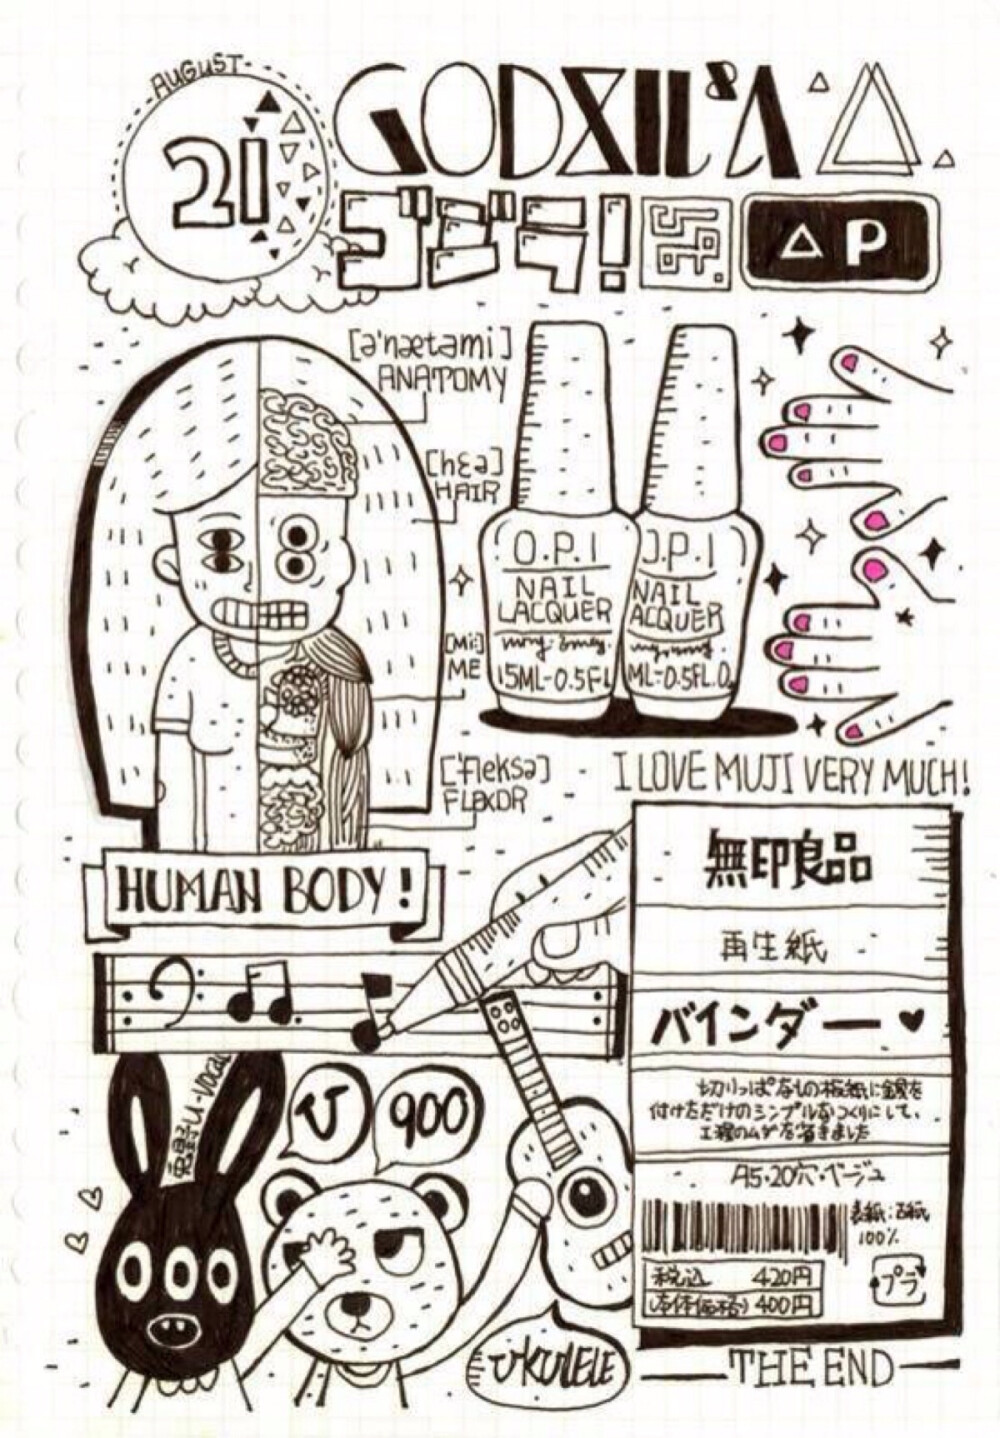 AUGUST
21
GODXIL&A
ゴジラ!
P
[ə'nætəmi]
ANATOMY
[hɛə]
HAIR
[Mi:]
ME
['fleksə]
FLEXOR
HUMAN BODY!
O.P.I
NAIL
LACQUER
15ML-0.5FL
O.P.I
NAIL
ACQUER
ML-0.5FL.O
I LOVE MUJI VERY MUCH!
無印良品
再生紙
バインダー
切りっぱなしの板紙に金具を
付けただけのシンプルなつくりにして、
工程のムダを省きました
A5・20穴・ベージュ
表紙:古紙
100%
税込 420円
(本体価格) 400円
プラ
U-VOCAL
U
900
UKULELE
THE END